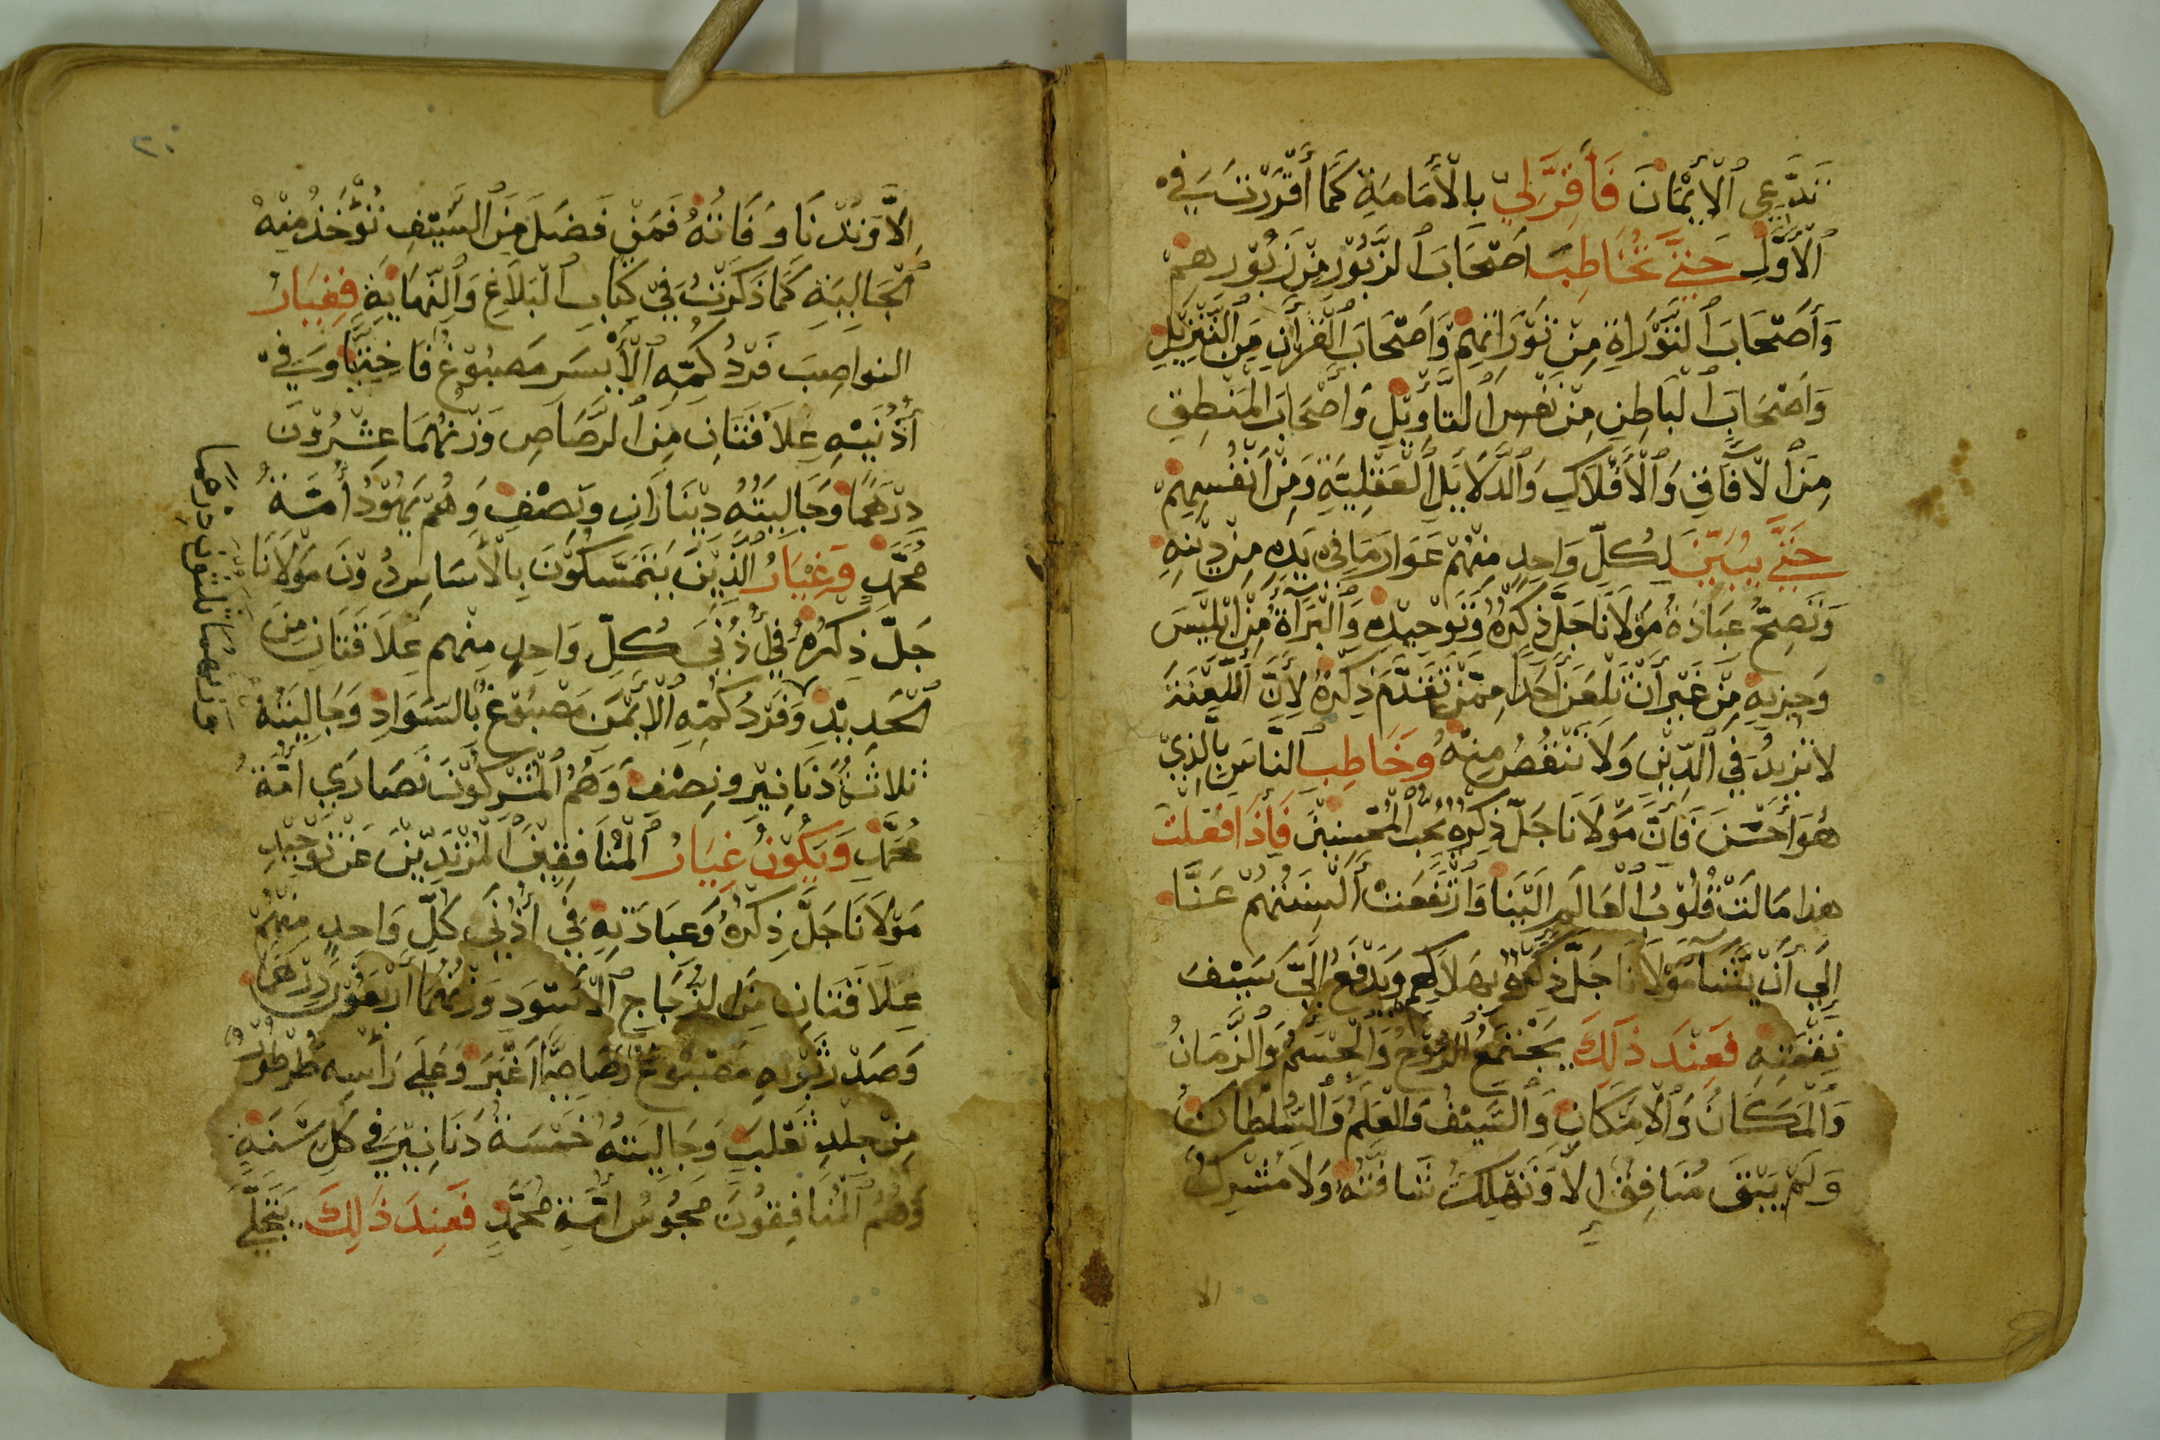 نَدَّعِي ٱلْإِيْمَانَ فَأَقِرَّ لِيْ بِالْأَمَامَةِ كَمَا أَقْرَرْتَ فِي
ٱلْأَوَّلِ حَتَّى تُخَاطِبَ أَصْحَابَ ٱلزَّبُوْرِ مِنْ زَبُوْرِهِمْ
وَأَصْحَابَ ٱلتَّوْرَاةِ مِنْ تَوْرَاتِهِمْ وَأَصْحَابَ ٱلْقُرْآنِ مِنَ ٱلتَّنْزِيْلِ
وَأَصْحَابَ ٱلْبَاطِنِ مِنْ نَفْسِ ٱلتَّأْوِيْلِ وَأَصْحَابَ الْمَنْطِقِ
مِنَ ٱلْآفَاقِ وَٱلْأَفْلَاكِ وَٱلدَّلَايِلِ ٱلْعَقْلِيَّةِ وَمِنْ أَنْفُسِهِمْ
حَتَّى يَبِيْنَ لِكُلِّ وَاحِدٍ مِنْهُمْ عَوَارَ مَا فِيْ يَدِهِ مِنْ دِيْنِهِ
وَتَصِحُّ عِبَادَةُ مَوْلَانَا جَلَّ ذِكْرُهُ وَتَوْحِيْدِهِ وَٱلْبَرَأَةُ مِنْ إِبْلِيْسَ
وَحِزْبِهِ مِنْ غَيْرِ أَنْ تَلْعَنَ أَحَدًا مِمَّنْ تَقَدَّمَ ذِكْرُهُ لِأَنَّ ٱللَّعْنَةَ
لَا تَزِيْدُ فِي ٱلدِّيْنِ وَلَا تَنْقُصُ مِنْهُ وَخَاطِبِ ٱلنَّاسَ بِالَّذِيْ
هُوَ أَحْسَنَ فَإِنَّ مَوْلَانَا جَلَّ ذِكْرُهُ يُحِبُّ ٱلْمُحْسِنِيْنَ فَإِذَا فَعَلْتَ
هذا مَالَتْ قُلُوْبُ ٱلْعَالَمِ إِلَيْنَا وَٱرْتَفَعَتْ أَلْسِنَتُهُمْ عَنَّا
إِلَى أَنْ يَشَآءَ مَوْلَانَا جَلَّ ذِكْرُهُ بِهَلَاكِهِمْ وَيَدْفَعُ إِلَيَّ سَيْفَ
نِقْمَتِهِ فَعِنْدَ ذَلِكَ يَجْتَمِعُ الرُّوْحُ وَالْجِسْمُ وَٱلزَّمَانُ
وَٱلْمَكَانُ وَٱلْإِمْكَانِ وَٱلسَّيْفُ وَٱلْقَلَمُ وَٱلسُّلْطَانُ
وَلَمْ يَبْقَى مُنَافِقٌ إِلَّا وَتَهْلِكُ شَافَتُهُ وَلَا مُشْرِكٌ
الا
٢٠
إِلَّا وَتَدْنَا وَفَاتُهُ فَمَنْ فَضَلَ مِنَ ٱلسَّيْفِ تُؤْخَذُ مِنْهُ
ٱلْجَالِيَةِ كَمَا ذَكَرْتُ فِي كِتَابِ ٱلْبَلَاغِ وَٱلنِّهَايَةِ فَغِيَارُ
النواصِبَ فَرْدُ كُمِّهِ ٱلْأَيْسَرِ مَصْبُوْغٌ فَاخِتِيًّا وَفِيْ
أُذُنَيْهِ عِلَاقَتَانِ مِنَ ٱلرَّصَاصِ وَزْنُهُمَا عِشْرُوْنَ
دِرْهَمًا وَجَالِيَتُهُ دِيْنَارَانِ وَنِصْفٍ وَهُمْ يَهُوْدُ أُمَّةِ
مُحَمَّدٍ وَغِيَارُ ٱلَّذِيْنَ يَتَمَسَّكُوْنَ بِالْأَسَاسِ دُوْنَ مَوْلَانَا
جَلَّ ذِكْرُهُ فِيْ أُذُنَيْ كُلِّ وَاحِدٍ مِنْهِم عِلَاقَتَانِ مِنَ
ٱلْحَدِيْدِ وَفَرْدُ كُمِّهِ ٱلْأَيْمَنَ مَصْبُوْغٌ بِالسَّوَادِ وَجَالِيَتُهُ
ثَلَاثَةُ دَنَانِيْرَ وَنِصْفُ وَهُمُ ٱلْمُشْرِكُوْنَ نَصَارَى أُمَّةِ
مُحَمَّدٍ وَيَكُوْنُ غِيَارُ ٱلْمُنَافِقِيْنَ ٱلْمُرْتَدِّيْنَ عَنْ تَوْحِيْدِ
مَوْلَانَا جَلَّ ذِكْرُهُ وَعِبَادَتِهِ فِي أُذُنَى كُلِّ وَاحِدٍ مِنْهُمْ
عِلَاقَتَانِ مِنَ الزُّجَاجِ ٱلْأَسْوَدِ وَزْنُهُمَا أَرْبَعُوْنَ دِرْهَمًا
وَصَدْرُ ثَوْبِهِ مَصْبُوْغٌ رَصَاصِيًّا أَغْبَرَ وَعَلَى رَأْسِهِ طُرْطُوْرٌ
مِنْ جِلْدِ ثَعْلَبٍ وَجَالِيَتُهُ خَمْسَةُ دَنَانِيْرَ فِي كُلِّ سَنَةٍ
وَهُمُ ٱلْمُنَافِقُوْنَ مَجُوْسُ أُمَّةِ مُحَمَّدٍ فَعِنْدَ ذَلِكَ يَتَجَلَّى
وزنهما ثلثون درهما